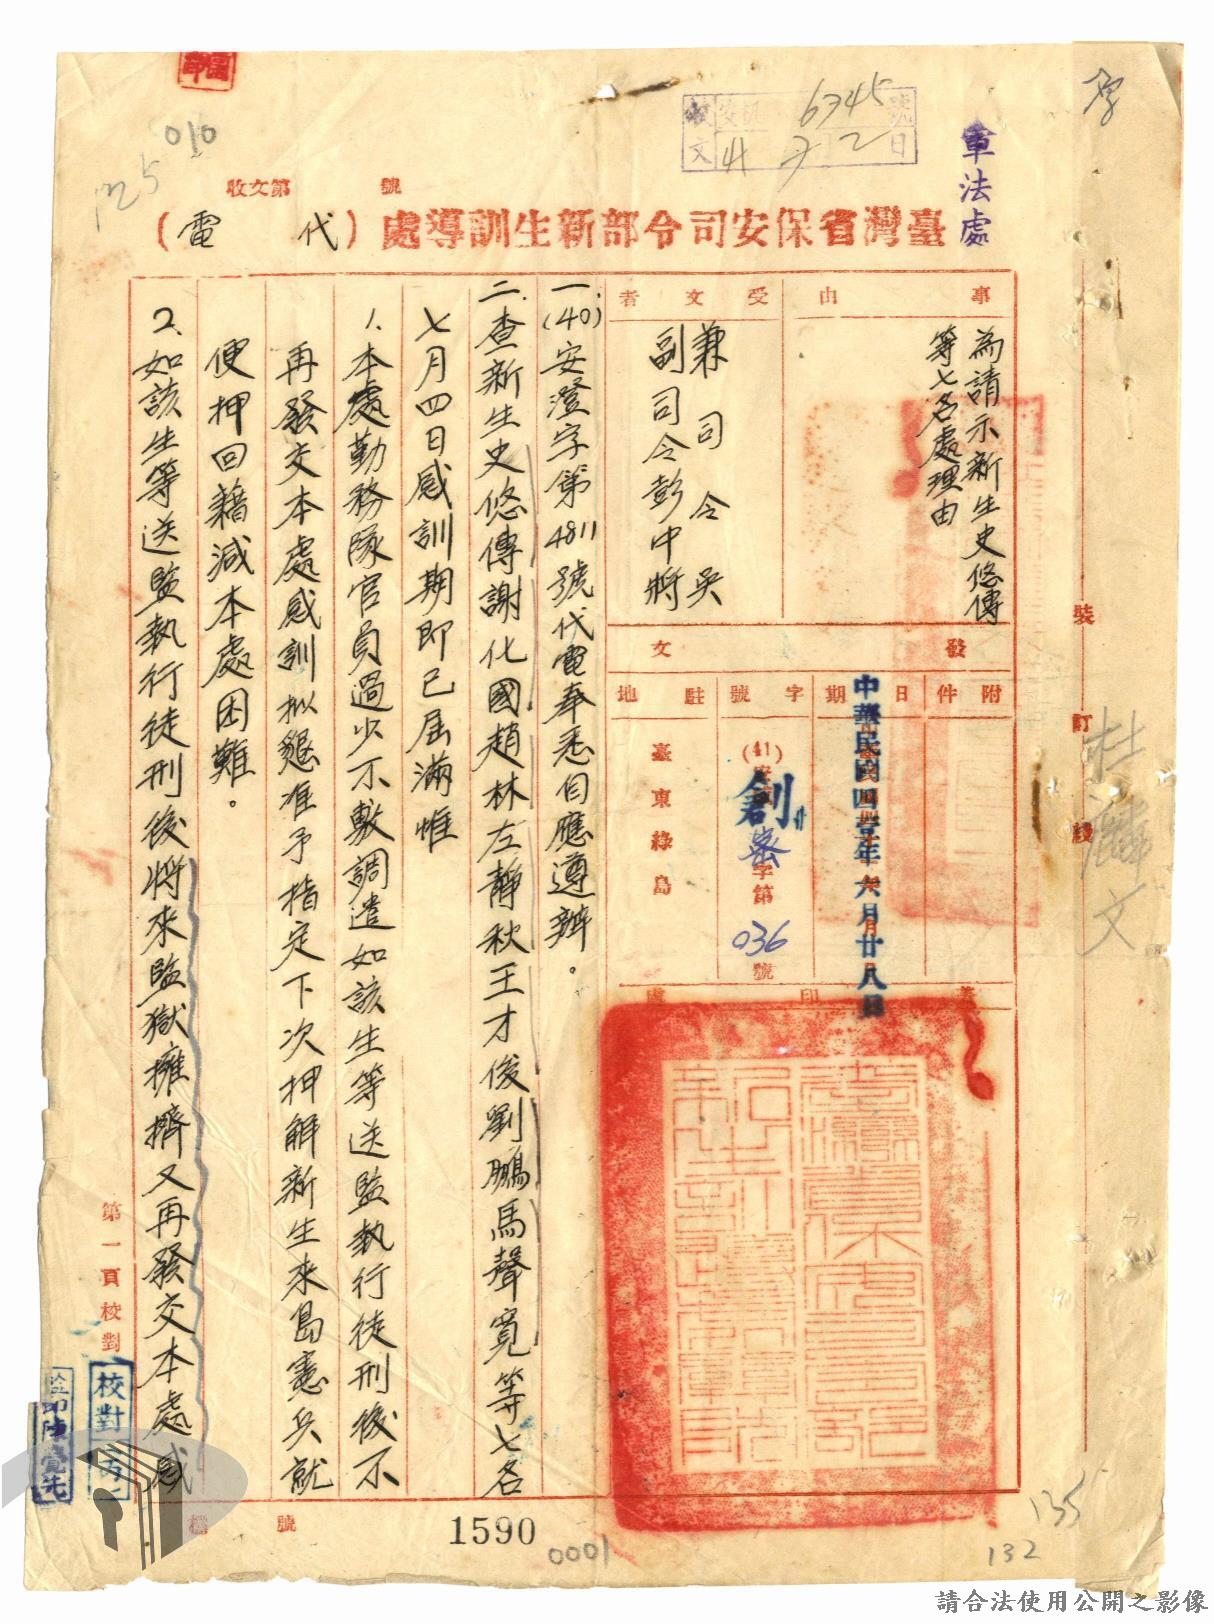 存
軍法處
收文 安机 6345號
41 7 2日
010
125
收文第 號
臺灣省保安司令部新生訓導處(代電)
事由
為請示新生史悠傳
等七名處理由
受文者
兼司令吳
副司令彭中將
發文
附件
日期
中華民國四壹年六月廿八日
字號
(41)
創
密字第
036
號
駐地
臺東綠島
蓋印處
一、(40)安澄字第4811號代電奉悉自應遵辦。
二、查新生史悠傳謝化國趙林左靜秋王才俊劉鵬馬聲寬等七名
七月四日感訓期即已屆滿惟
1、本處勤務隊官員過少不敷調遣如該生等送監執行徒刑後不
再發交本處感訓擬懇准予指定下次押解新生來島憲兵就
便押回藉減本處困難。
2、如該生等送監執行徒刑後將來監獄擁擠又再發交本處感
裝
訂
線
杜
文
第一頁校對
校對
檔號
1590
0001
135
132
請合法使用公開之影像